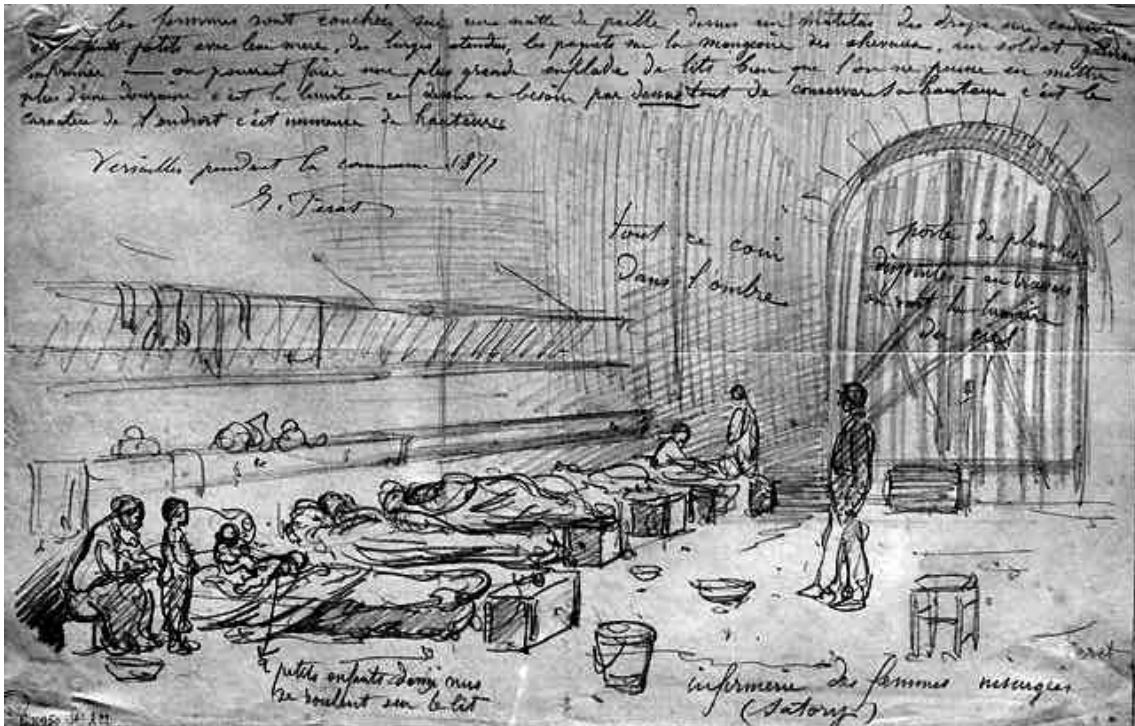 les femmes sont couchées sur une natte de paille dessus un matelas des draps une couverture
enfants petits avec leur mère, des linges étendus, les paquets sur la mangeoire des chevaux, un soldat
infirmier — on pourrait faire une plus grande enfilade de lits bien que l'on ne puisse en mettre
plus d'une douzaine c'est la limite — ce dessin a besoin par dessus tout de conserver sa hauteur c'est le
caractère de l'endroit c'est immense de hauteur
Versailles pendant la commune 1871
G. Ferat
tout ce coin
dans l'ombre
porte de planches
disjointes — au travers
on voit la lumière
du
petits enfants demi nus
se roulent sur le lit
infirmerie des femmes insurgées
(Satory)